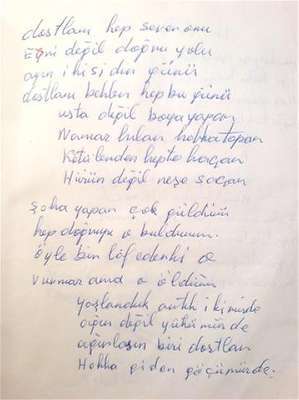 dostların hep seven onu
Eğri değil doğru yolu
ayın ikisi din günür
dostların beklen hep bu günür
usta değil boya yapan
Namaz kılan hakka tapan
Kötülerden hepte kaçan
Hüzün değil neşe saçan
Şaka yapan çok güldüm
hep doğruyu o buldurum.
öyle bin löf edenki o
vurmaz ama o öldürür
yaşlandık artık ikimizde
ağır değil yükümüzde
ağırlaşın biri dostlar
Hakka giden göçümüzde.